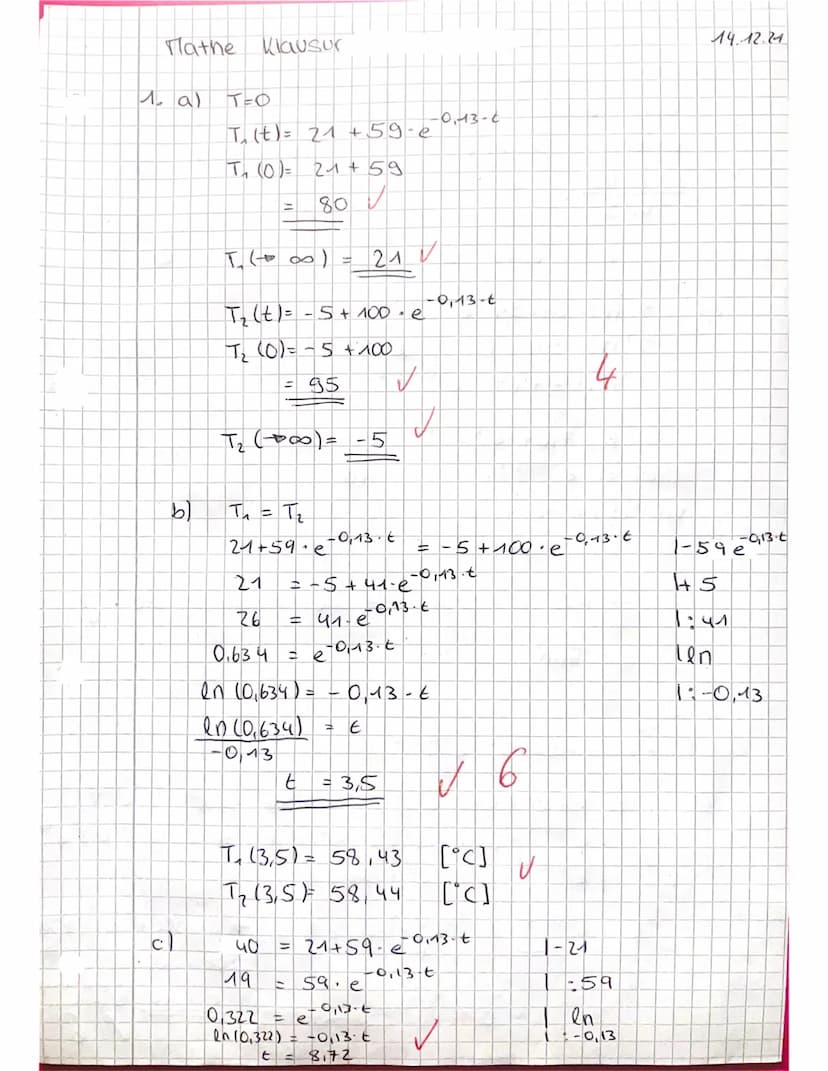 Mathe Klausur 14.12.21
1. a) T=0
T₁(t)= 21 + 59·e^-0,13·t
T₁(0)= 21 + 59
= 80 ✓
T₁(→ ∞) = 21 ✓
T₂(t)= -5 + 100 · e^-0,13·t
T₂(0)= -5 + 100
= 95 ✓
4
T₂(→∞)= -5 ✓
b) T₁ = T₂
21+59·e^-0,13·t = -5+100·e^-0,13·t |-59e^-0,13·t
21 = -5+41·e^-0,13·t |+5
26 = 41·e^-0,13·t |:41
0,634 = e^-0,13·t |ln
ln(0,634)= -0,13·t |:-0,13
ln(0,634)/-0,13 = t
t = 3,5 ✓ 6
T₁(3,5)= 58,43 [°C] ✓
T₂(3,5)= 58,44 [°C]
c) 40 = 21+59·e^-0,13·t |-21
19 = 59·e^-0,13·t | :59
0,322 = e^-0,13·t | ln
ln(0,322) = -0,13·t | :-0,13
t = 8,72 ✓